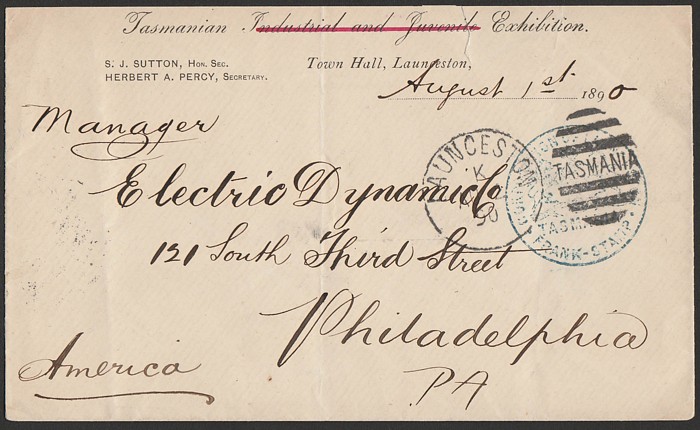 Tasmanian Industrial and Juvenile Exhibition.
S. J. SUTTON, HON. SEC.
HERBERT A. PERCY, SECRETARY.
Town Hall, Launceston,
August 1st 1890
Manager
Electric Dynamic Co
121 South Third Street
Philadelphia
PA
America
LAUNCESTON
K
90
TASMANIA
TASMANIA
FRANK-STAMP